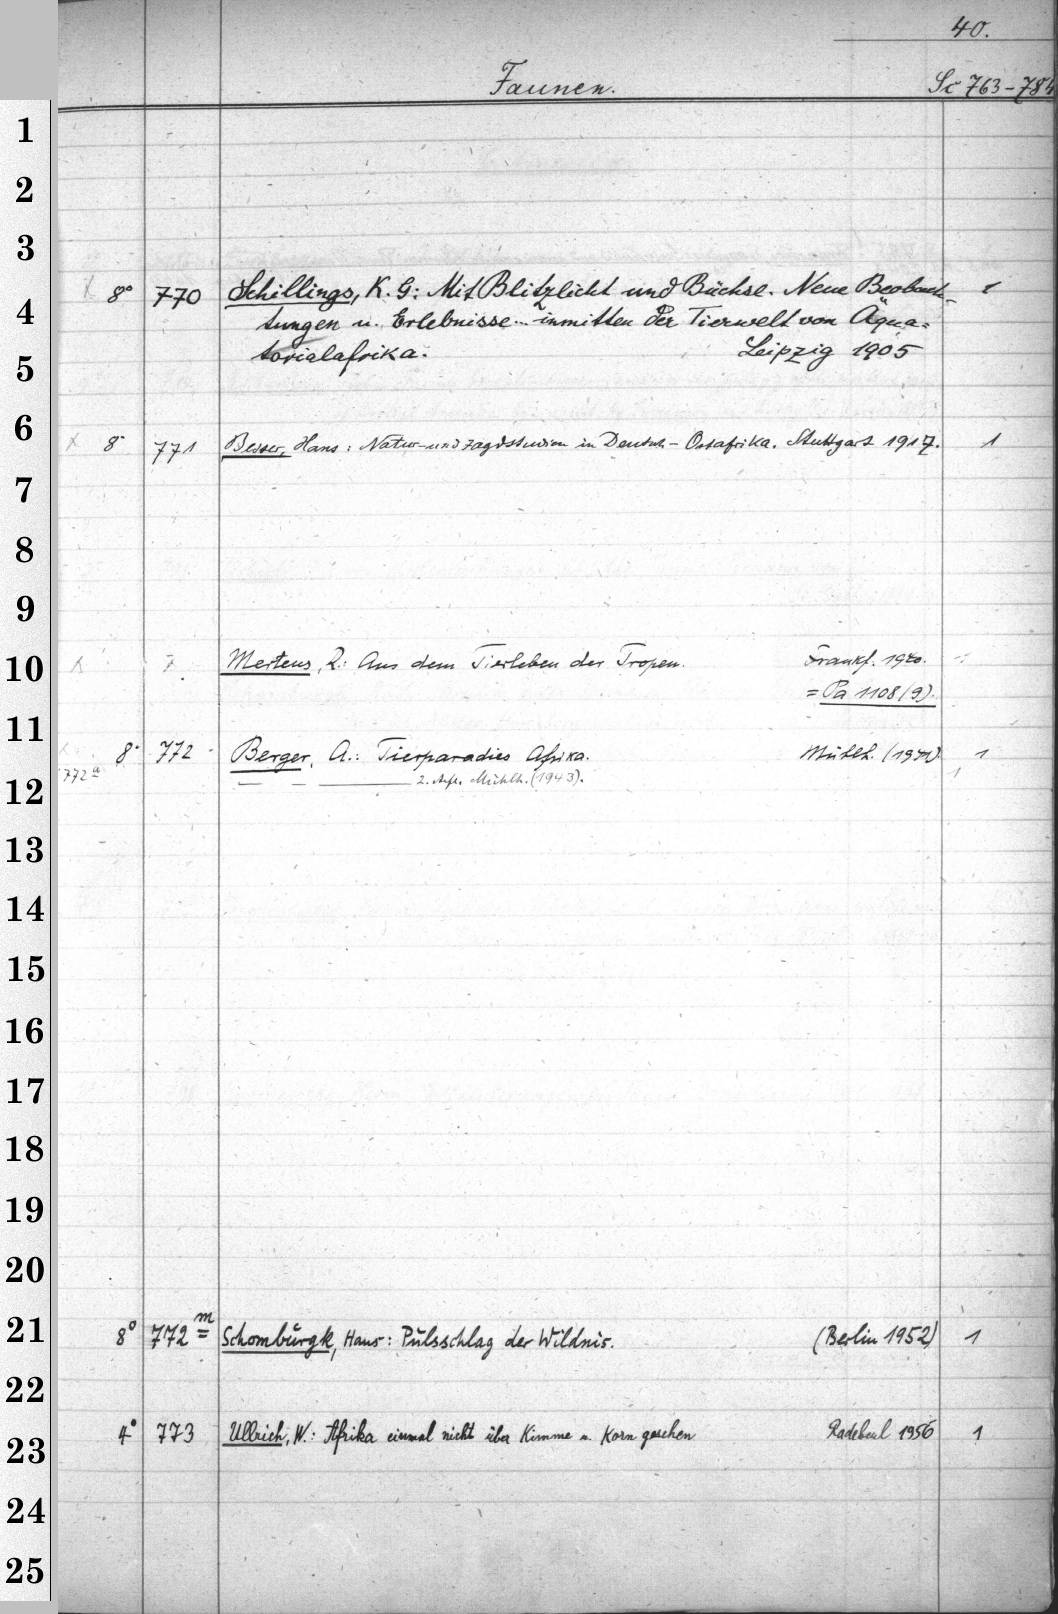 40.
Faunen. Sc 763-784
1
2
3
8° 770 Schillings, K. G: Mit Blitzlicht und Büchse. Neue Beobach- 1
4
tungen u. Erlebnisse... inmitten der Tierwelt von Äqua=
torialafrika. Leipzig 1905
5
6
X 8° 771 Besser, Hans: Natur- und Jagdstudien in Deutsch-Ostafrika. Stuttgart 1917. 1
7
8
9
10
X Mertens, R.: Aus dem Tierleben der Tropen. Frankf. 1940.
= Pa 1108(9).
11
8° 772 Berger, A.: Tierparadies Afrika. Mühlh. (1941) 1
772a — — — 2. Aufl. Mühlh. (1943). 1
12
13
14
15
16
17
18
19
20
21
8° 772m Schomburgk, Hans: Pulsschlag der Wildnis. (Berlin 1952) 1
22
4° 773 Ullrich, W.: Afrika einmal nicht über Kimme u. Korn gesehen Radebeul 1956 1
23
24
25